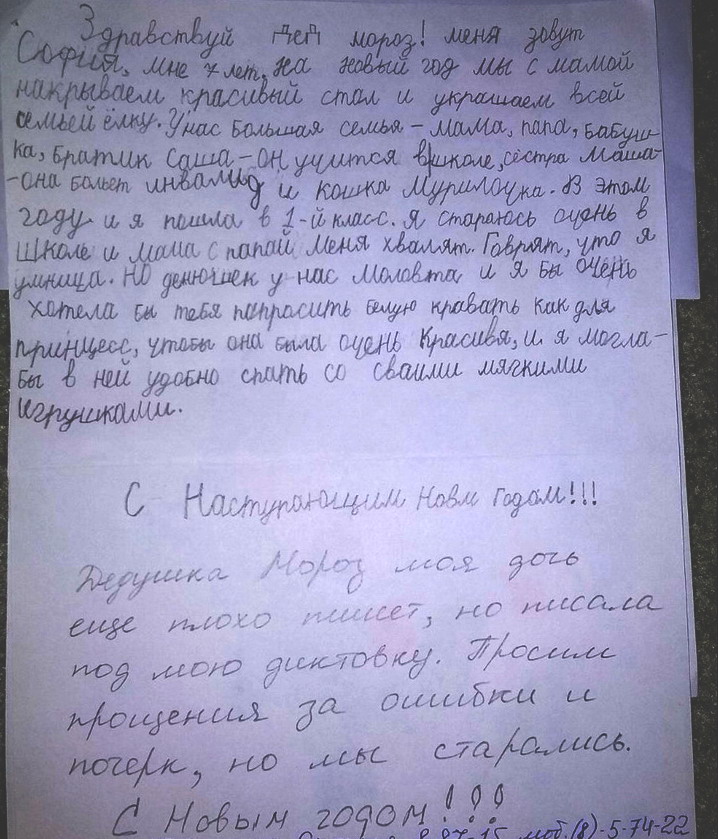 Здравствуй Дед мороз! меня зовут
София, мне 7 лет, на новый год мы с мамой
накрываем красивый стал и украшаем всей
семьей ёлку. У нас большая семья - мама, папа, бабуш-
ка, братик Саша - он учится в школе, сестра Маша-
-она больет инвалид и кошка Мурилочка. В этом
году и я пошла в 1-й класс. Я стараюсь очень в
школе и мама с папай меня хвалят. Говрят, что я
умница. Но денюшек у нас маловта и я бы очень
хотела бы тебя папрасить белую кравать как для
принцесс, чтобы она была очень красивя, и я могла-
бы в ней удобно спать со сваими мягкими
игрушками.
С Наступающим Новм годом!!!
Дедушка Мороз моя дочь
еще плохо пишет, но писала
под мою диктовку. Просим
прощения за ошибки и
почерк, но мы старались.
С Новым годом!!!
моб.(8)-5-74-22